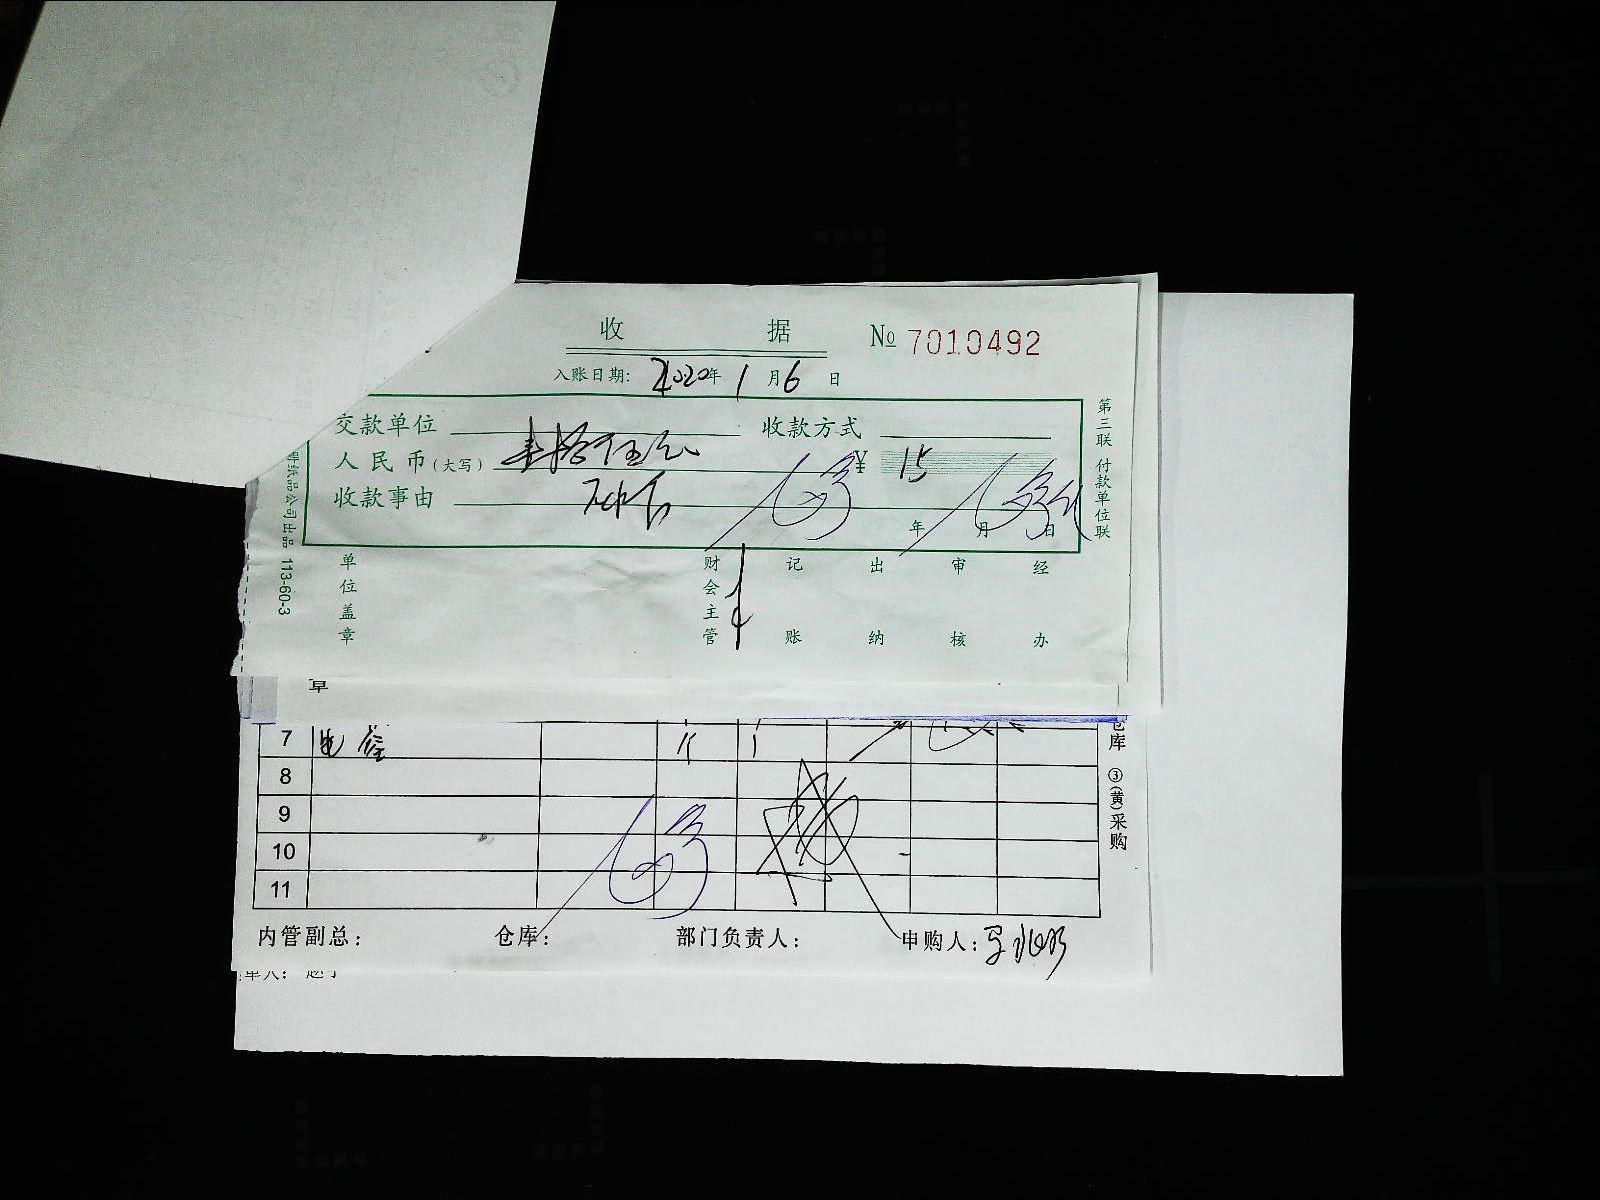 收 据 № 7010492
入账日期: 2020年 1 月 6 日
交款单位 收款方式
人民币(大写) 壹拾伍元 ¥ 15
收款事由
年 月 日
第三联 付款单位联
纸品公司出品 113-60-3
单位盖章 财会主管 记账 出纳 审核 经办
章
7 电
8
9
10
11
仓库 ③(黄)采购
内管副总: 仓库: 部门负责人: 申购人: